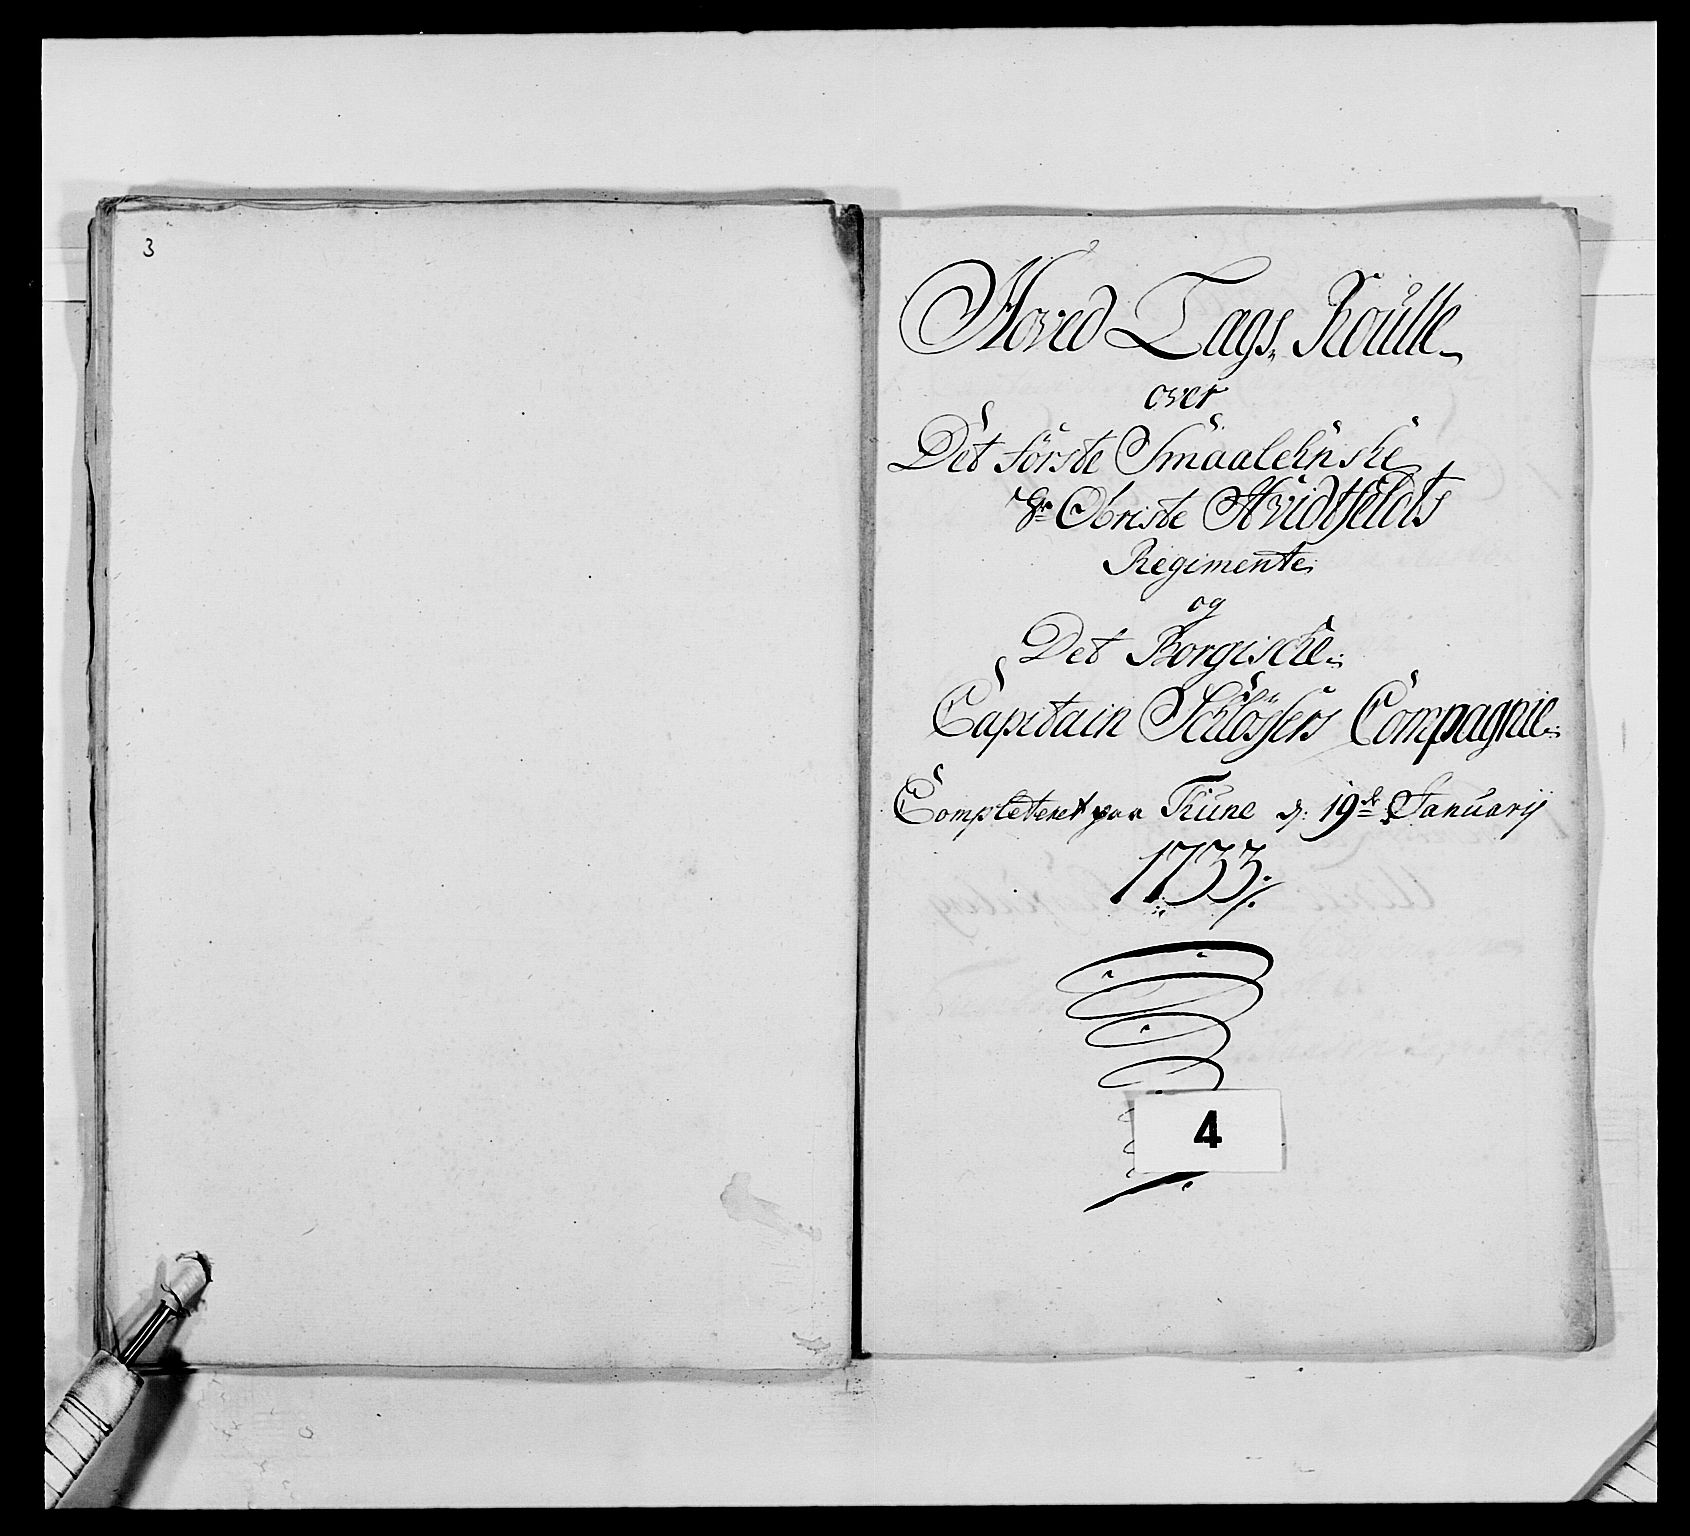 3
Hoved Lægs Roulle
over
Det förste Smaalehnske
Hr Obriste Hvidtfeldts
Regimente
og
Det Borgische
Capitain Schlössers Compagnie
Completeret paa Tune d: 19de January
1733
4